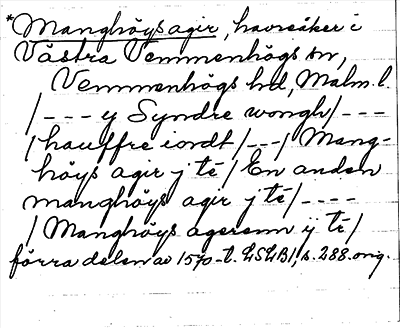 *Manghöysagir, havreåker i
Västra Vemmenhögs sn,
Vemmenhögs hd, Malm. l.
/--- y Syndre wongh/---
/hauffre iordt/---/ Mang-
höys agir j té/ En anden
manghöys agir j té/----
/Manghöys agerenn ÿ té/
förra delen av 1570-t. LSLB1, s. 288. orig.